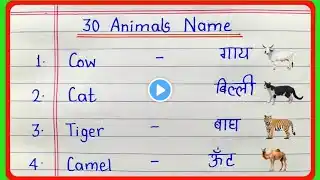 30 Animals Name
1. Cow - गाय
2. Cat - बिल्ली
3. Tiger - बाघ
4. Camel - ऊँट